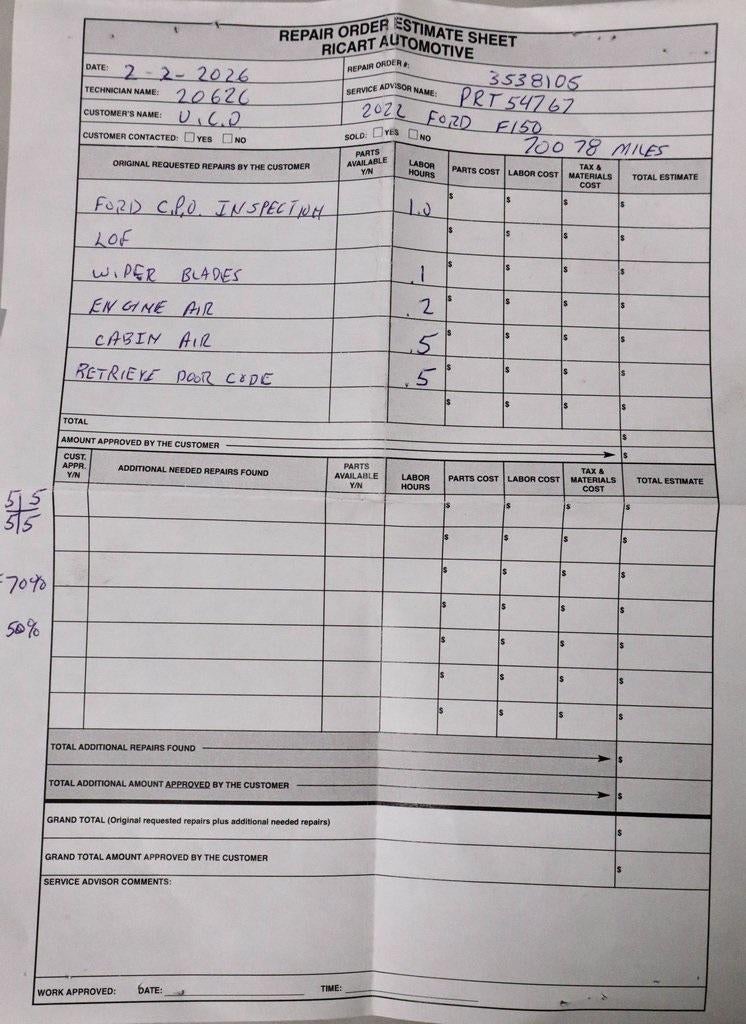 REPAIR ORDER ESTIMATE SHEET
RICART AUTOMOTIVE
DATE: 2-2-2026
REPAIR ORDER #: 3538105
TECHNICIAN NAME: 20626
SERVICE ADVISOR NAME: PRT 54767
CUSTOMER'S NAME: U.C.O
2022 FORD F150
CUSTOMER CONTACTED: YES NO
SOLD: YES NO
70078 MILES
ORIGINAL REQUESTED REPAIRS BY THE CUSTOMER PARTS AVAILABLE Y/N LABOR HOURS PARTS COST LABOR COST TAX & MATERIALS COST TOTAL ESTIMATE
FORD C.P.O. INSPECTION 1.0 $ $ $ $
LOF $ $ $ $
WIPER BLADES .1 $ $ $ $
ENGINE AIR .2 $ $ $ $
CABIN AIR .5 $ $ $ $
RETRIEVE DOOR CODE .5 $ $ $ $
$ $ $ $
TOTAL $
AMOUNT APPROVED BY THE CUSTOMER $
CUST. APPR. Y/N ADDITIONAL NEEDED REPAIRS FOUND PARTS AVAILABLE Y/N LABOR HOURS PARTS COST LABOR COST TAX & MATERIALS COST TOTAL ESTIMATE
5 5 $ $ $ $
5 5 $ $ $ $
70% $ $ $ $
50% $ $ $ $
$ $ $ $
$ $ $ $
$ $ $ $
TOTAL ADDITIONAL REPAIRS FOUND $
TOTAL ADDITIONAL AMOUNT APPROVED BY THE CUSTOMER $
GRAND TOTAL (Original requested repairs plus additional needed repairs) $
GRAND TOTAL AMOUNT APPROVED BY THE CUSTOMER $
SERVICE ADVISOR COMMENTS:
WORK APPROVED: DATE: TIME: